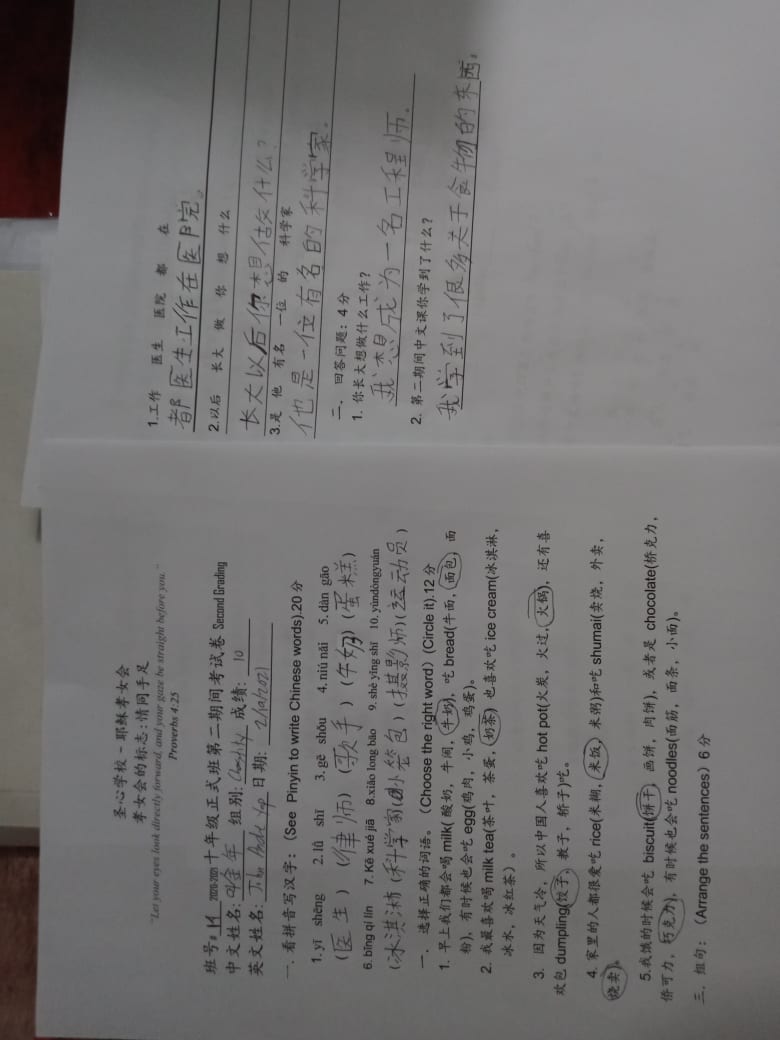 圣心学校－耶稣孝女会
孝女会的标志:情同手足
"Let your eyes look directly forward, and your gaze be straight before you."
Proverbs 4:25
班号# 14 2020-2021 十年级正式班第二期间考试卷 Second Grading
中文姓名: 年 组别: Chastity 成绩: 10
英文姓名: John Andre Yap 日期: 2/10/2021
一. 看拼音写汉字: (See Pinyin to write Chinese words).20 分
1. yī shēng 2. lǜ shī 3. gē shǒu 4. niú nǎi 5. dàn gāo
(医生) (律师) (歌手) (牛奶) (蛋糕)
6. bīng qí lín 7. Kē xué jiā 8. xiǎo lóng bāo 9. shè yǐng shī 10. yùndòngyuán
(冰淇淋) (科学家) (小笼包) (摄影师) (运动员)
一. 选择正确的词语。 (Choose the right word) (Circle it).12 分
1. 早上我们都会喝 milk( 酸奶, 牛闹, 牛奶), 吃 bread(牛面, 面包, 面
粉), 有时候也会吃 egg(鸡肉, 小鸡, 鸡蛋)。
2. 我最喜欢喝 milk tea(茶叶, 茶蛋, 奶茶) 也喜欢吃 ice cream(冰淇淋,
冰水, 冰红茶) 。
3. 因为天气冷, 所以中国人喜欢吃 hot pot(火炭, 火过, 火锅), 还有喜
欢包 dumpling(饺子, 教子, 轿子)吃。
4. 家里的人都很爱吃 rice(米糊, 米饭, 米粥)和吃 shumai(卖烧, 外卖,
烧卖)。
5.我饿的时候会吃 biscuit(饼干, 画饼, 肉饼), 或者是 chocolate(桥克力,
侨可力, 巧克力), 有时候也会吃 noodles(面筋, 面条, 小面)。
三. 组句: (Arrange the sentences) 6 分
1.工作 医生 医院 都 在
都医生工作在医院。
2.以后 长大 做 你 想 什么
长大以后你想做什么?
3.是 他 有名 一位 的 科学家
他是一位有名的科学家。
二. 回答问题: 4 分
1. 你长大想做什么工作?
我想成为一名工程师.
2. 第二期间中文课你学到了什么?
我学到了很多关于食物的东西。